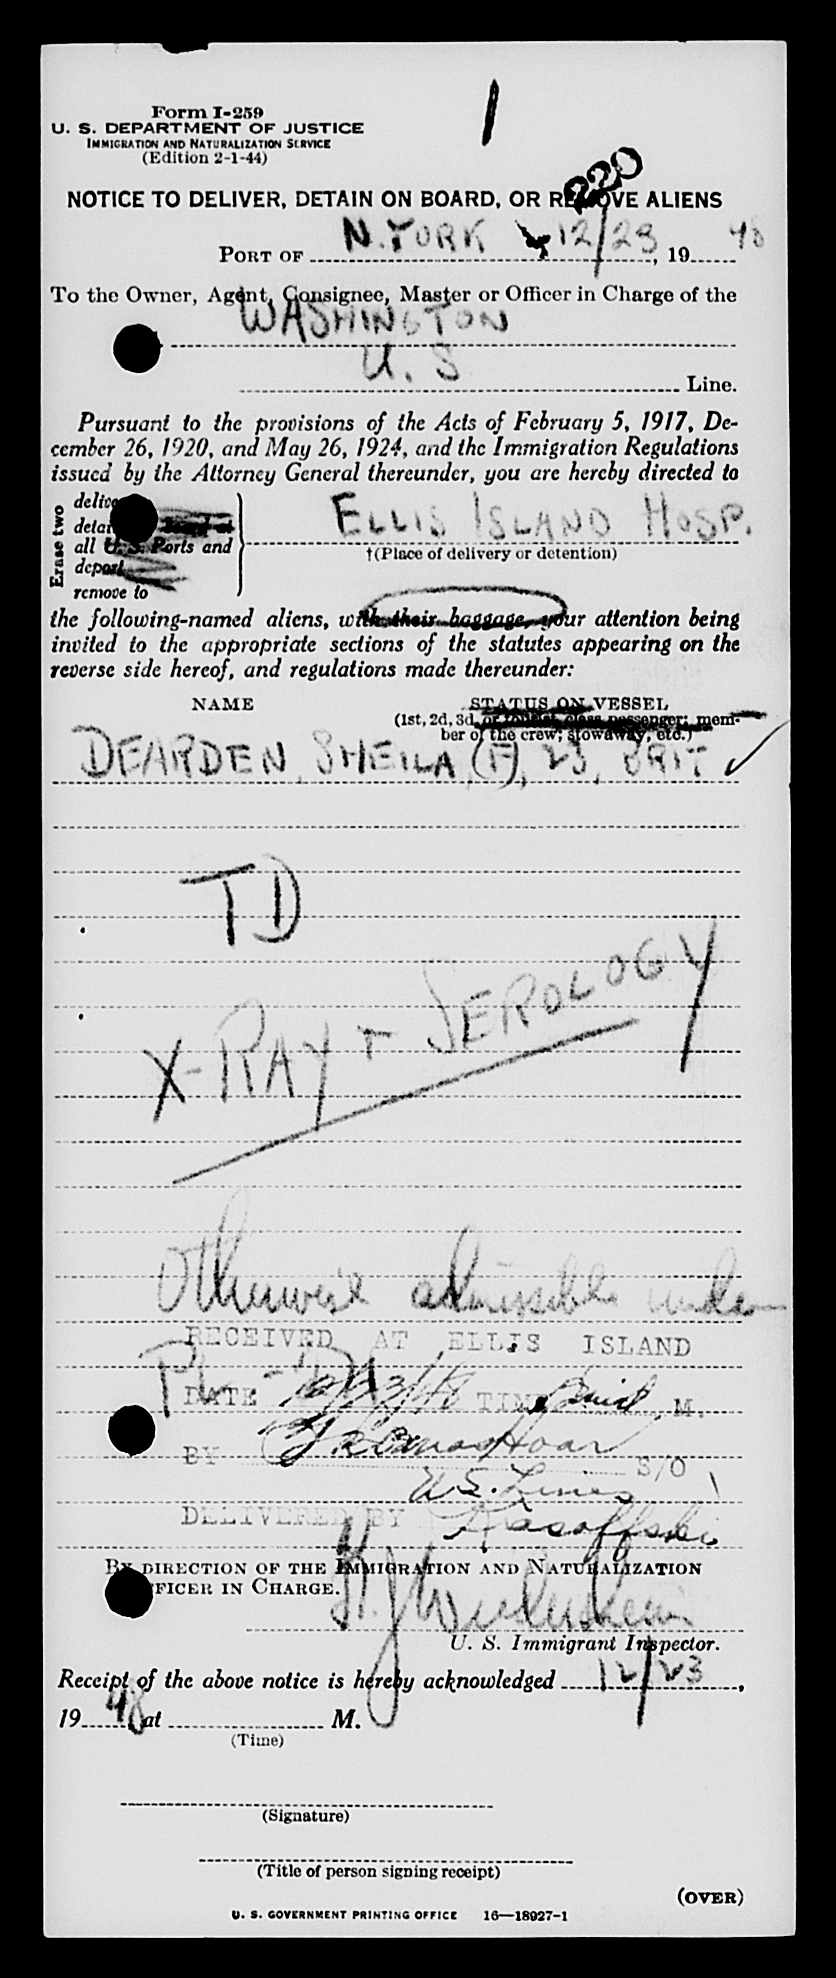 1
Form I-259
U. S. DEPARTMENT OF JUSTICE
IMMIGRATION AND NATURALIZATION SERVICE
(Edition 2-1-44)
220
NOTICE TO DELIVER, DETAIN ON BOARD, OR REMOVE ALIENS
PORT OF N. YORK 12/23, 19 48
To the Owner, Agent, Consignee, Master or Officer in Charge of the
WASHINGTON
U. S Line.
Pursuant to the provisions of the Acts of February 5, 1917, De-
cember 26, 1920, and May 26, 1924, and the Immigration Regulations
issued by the Attorney General thereunder, you are hereby directed to
Erase two
deliver
detain on board at
all U. S. Ports and
deport
remove to
ELLIS ISLAND HOSP.
†(Place of delivery or detention)
the following-named aliens, with their baggage, your attention being
invited to the appropriate sections of the statutes appearing on the
reverse side hereof, and regulations made thereunder:
NAME STATUS ON VESSEL
(1st, 2d, 3d, or tourist class passenger; mem-
ber of the crew; stowaway, etc.)
DEARDEN, SHEILA (F), 23, BRIT ✓
TD
X-RAY + SEROLOGY
Otherwise admissible under
RECEIVED AT ELLIS ISLAND
PL
DATE 12/23/48 TIME M.
BY Thomas Hoar S/O
U.S. Lines
DELIVERED BY
BY DIRECTION OF THE IMMIGRATION AND NATURALIZATION
OFFICER IN CHARGE.
U. S. Immigrant Inspector.
Receipt of the above notice is hereby acknowledged 12/23,
19 48 at M.
(Time)
(Signature)
(Title of person signing receipt)
(OVER)
U. S. GOVERNMENT PRINTING OFFICE 16—18927-1